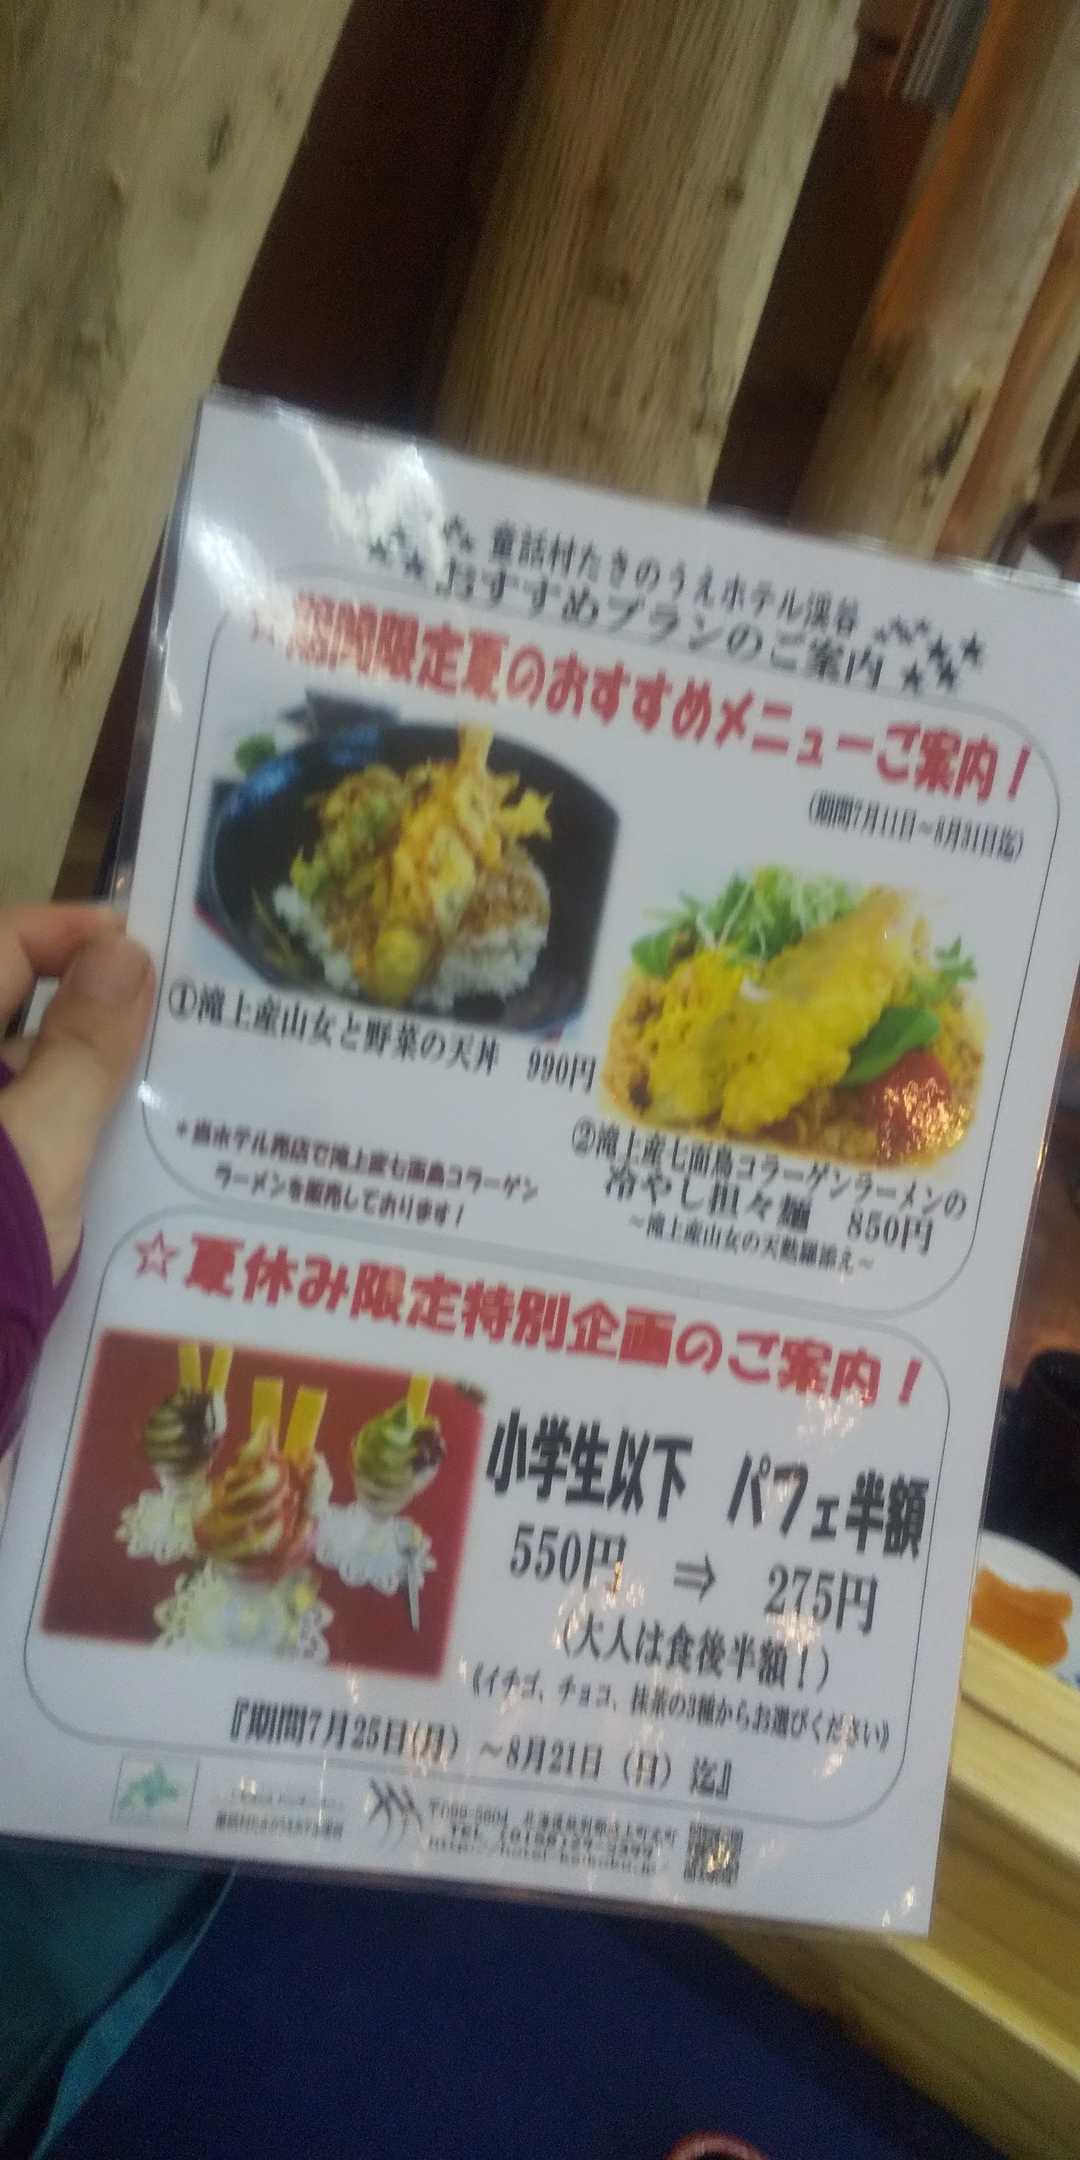 童話村たきのうえホテル渓谷
おすすめプランのご案内
期間限定夏のおすすめメニューご案内！
（期間7月11日～8月31日迄）
①滝上産山女と野菜の天丼　990円
②滝上産七面鳥コラーゲンラーメンの
冷やし担々麺　850円
～滝上産山女の天麩羅添え～
＊当ホテル売店で滝上産七面鳥コラーゲン
ラーメンを販売しております！
☆夏休み限定特別企画のご案内！
小学生以下　パフェ半額
550円　⇒　275円
（大人は食後半額！）
《イチゴ、チョコ、抹茶の3種からお選びください》
『期間7月25日（月）～8月21日（日）迄』